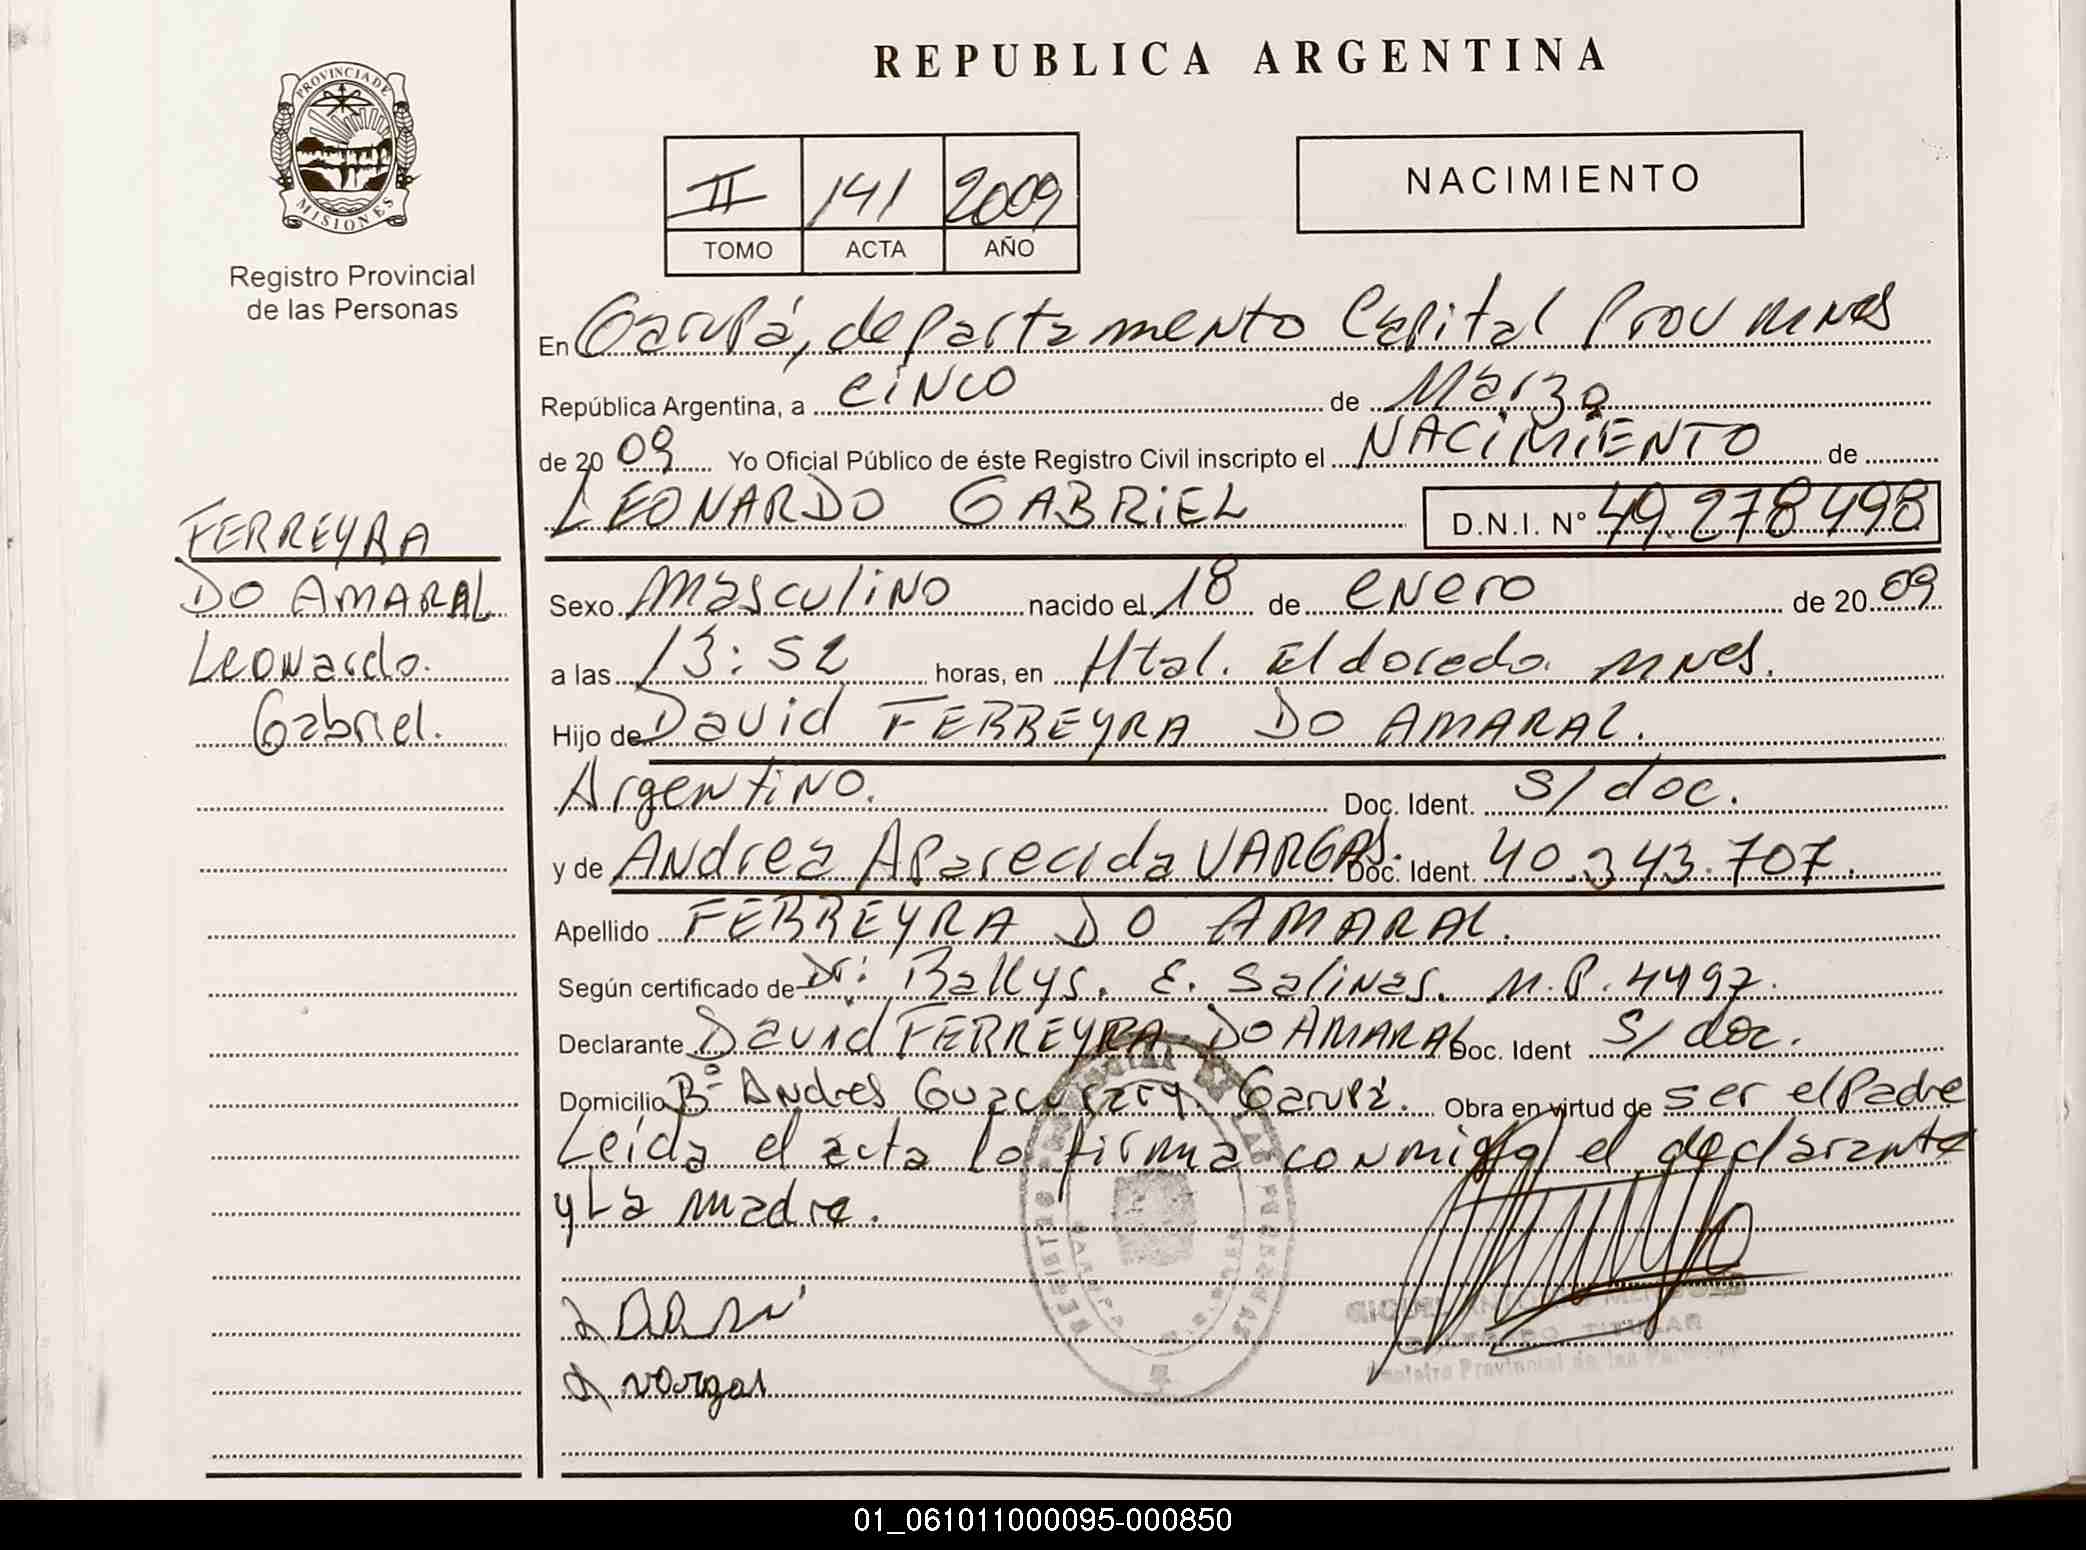 REPUBLICA ARGENTINA
PROVINCIA DE
MISIONES
Registro Provincial
de las Personas
II 141 2009
TOMO ACTA AÑO
NACIMIENTO
En Garupá, departamento Capital Prov Mnes
República Argentina, a cinco de Marzo
de 2009 Yo Oficial Público de éste Registro Civil inscripto el NACIMIENTO de
LEONARDO GABRIEL D.N.I. Nº 49.278498
FERREYRA
DO AMARAL
Leonardo.
Gabriel.
Sexo Masculino nacido el 18 de enero de 2009
a las 13:52 horas, en Htal. Eldorado Mnes.
Hijo de David FERREYRA DO AMARAL.
Argentino. Doc. Ident. S/doc.
y de Andrea Aparecida VARGAS. Doc. Ident. 40.343.707.
Apellido FERREYRA DO AMARAL.
Según certificado de Dr: E. Salinas. M.P. 4497.
Declarante David FERREYRA DO AMARAL Doc. Ident S/doc.
Domicilio Bº Andres Guacurary. Garupá. Obra en virtud de ser el Padre
Leída el acta la firma conmigo el declarante
y La madre.
Vargas
REGISTRO PROVINCIAL DE LAS PERSONAS
TITULAR
Registro Provincial de las Personas
01_061011000095-000850